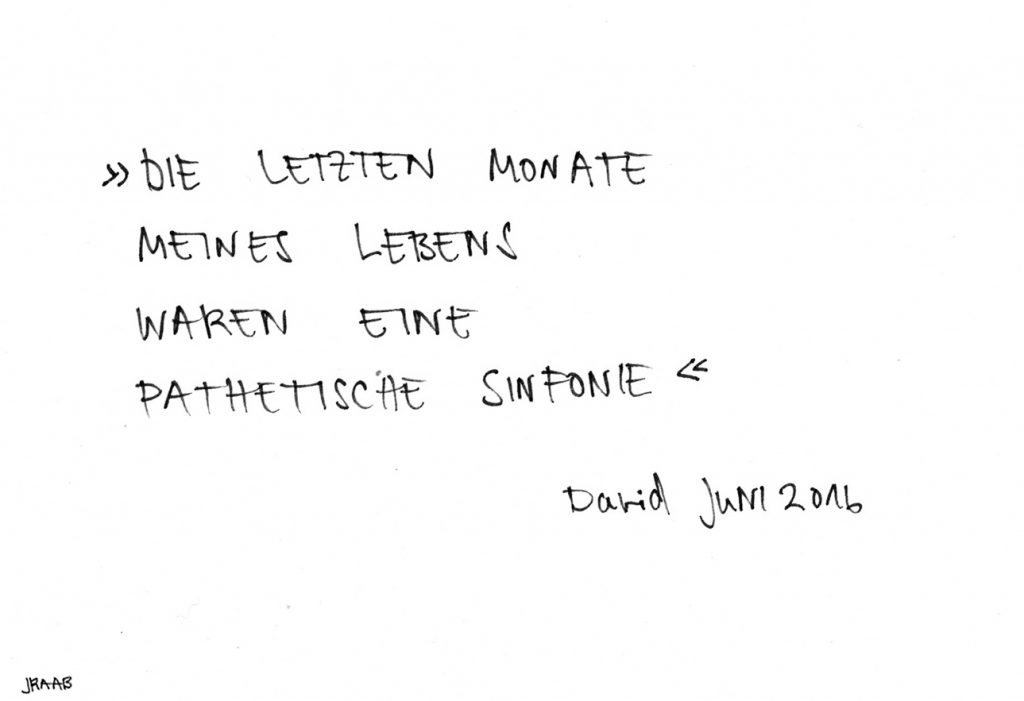 »DIE LETZTEN MONATE
MEINES LEBENS
WAREN EINE
PATHETISCHE SINFONIE«
David JUNI 2016
JRAAB